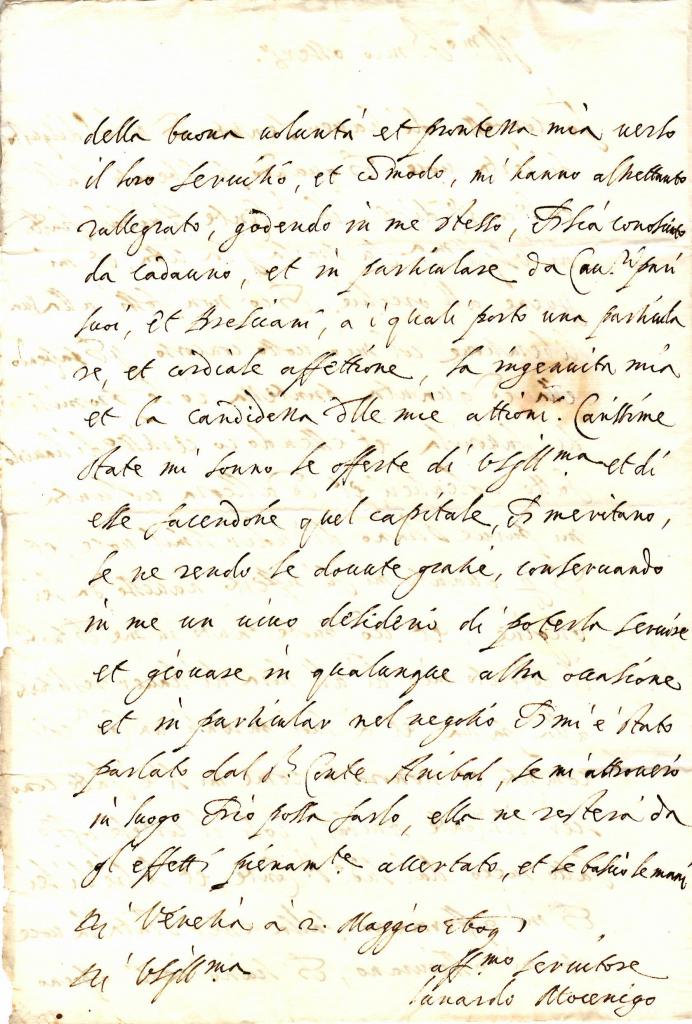 della buona uoluntà et prontezza mia uerso
il loro seruitio, et cõmodo, mi hanno altrettanto
rallegrato, godendo in me stesso, sia conosciuto
da cadauno, et in particulare da Cau.ri pari
suoi, et Bresciani, a i quali porto una particula
re, et cordiale affettione, la ingenuità mia
et la candidezza d̃lle mie attioni. Carissime
state mi sonno le offerte di VSIll.ma et di
esse facendone quel capitale, meritano,
le ne rendo le douute gratie, conseruando
in me un uiuo desiderio di poterla seruire
et giouare in qualunque altra occasione
et in particular nel negotio mi è stato
parlato dal s.r Conte Anibal, se mi attrouerò
in luogo io possa farlo, ella ne resterà da
gl'effetti pienam.te accertato, et le bascio le mani
Di Venetia à 2. Maggio
Di VSIll.ma aff.mo seruitore
Lunardo Mocenigo